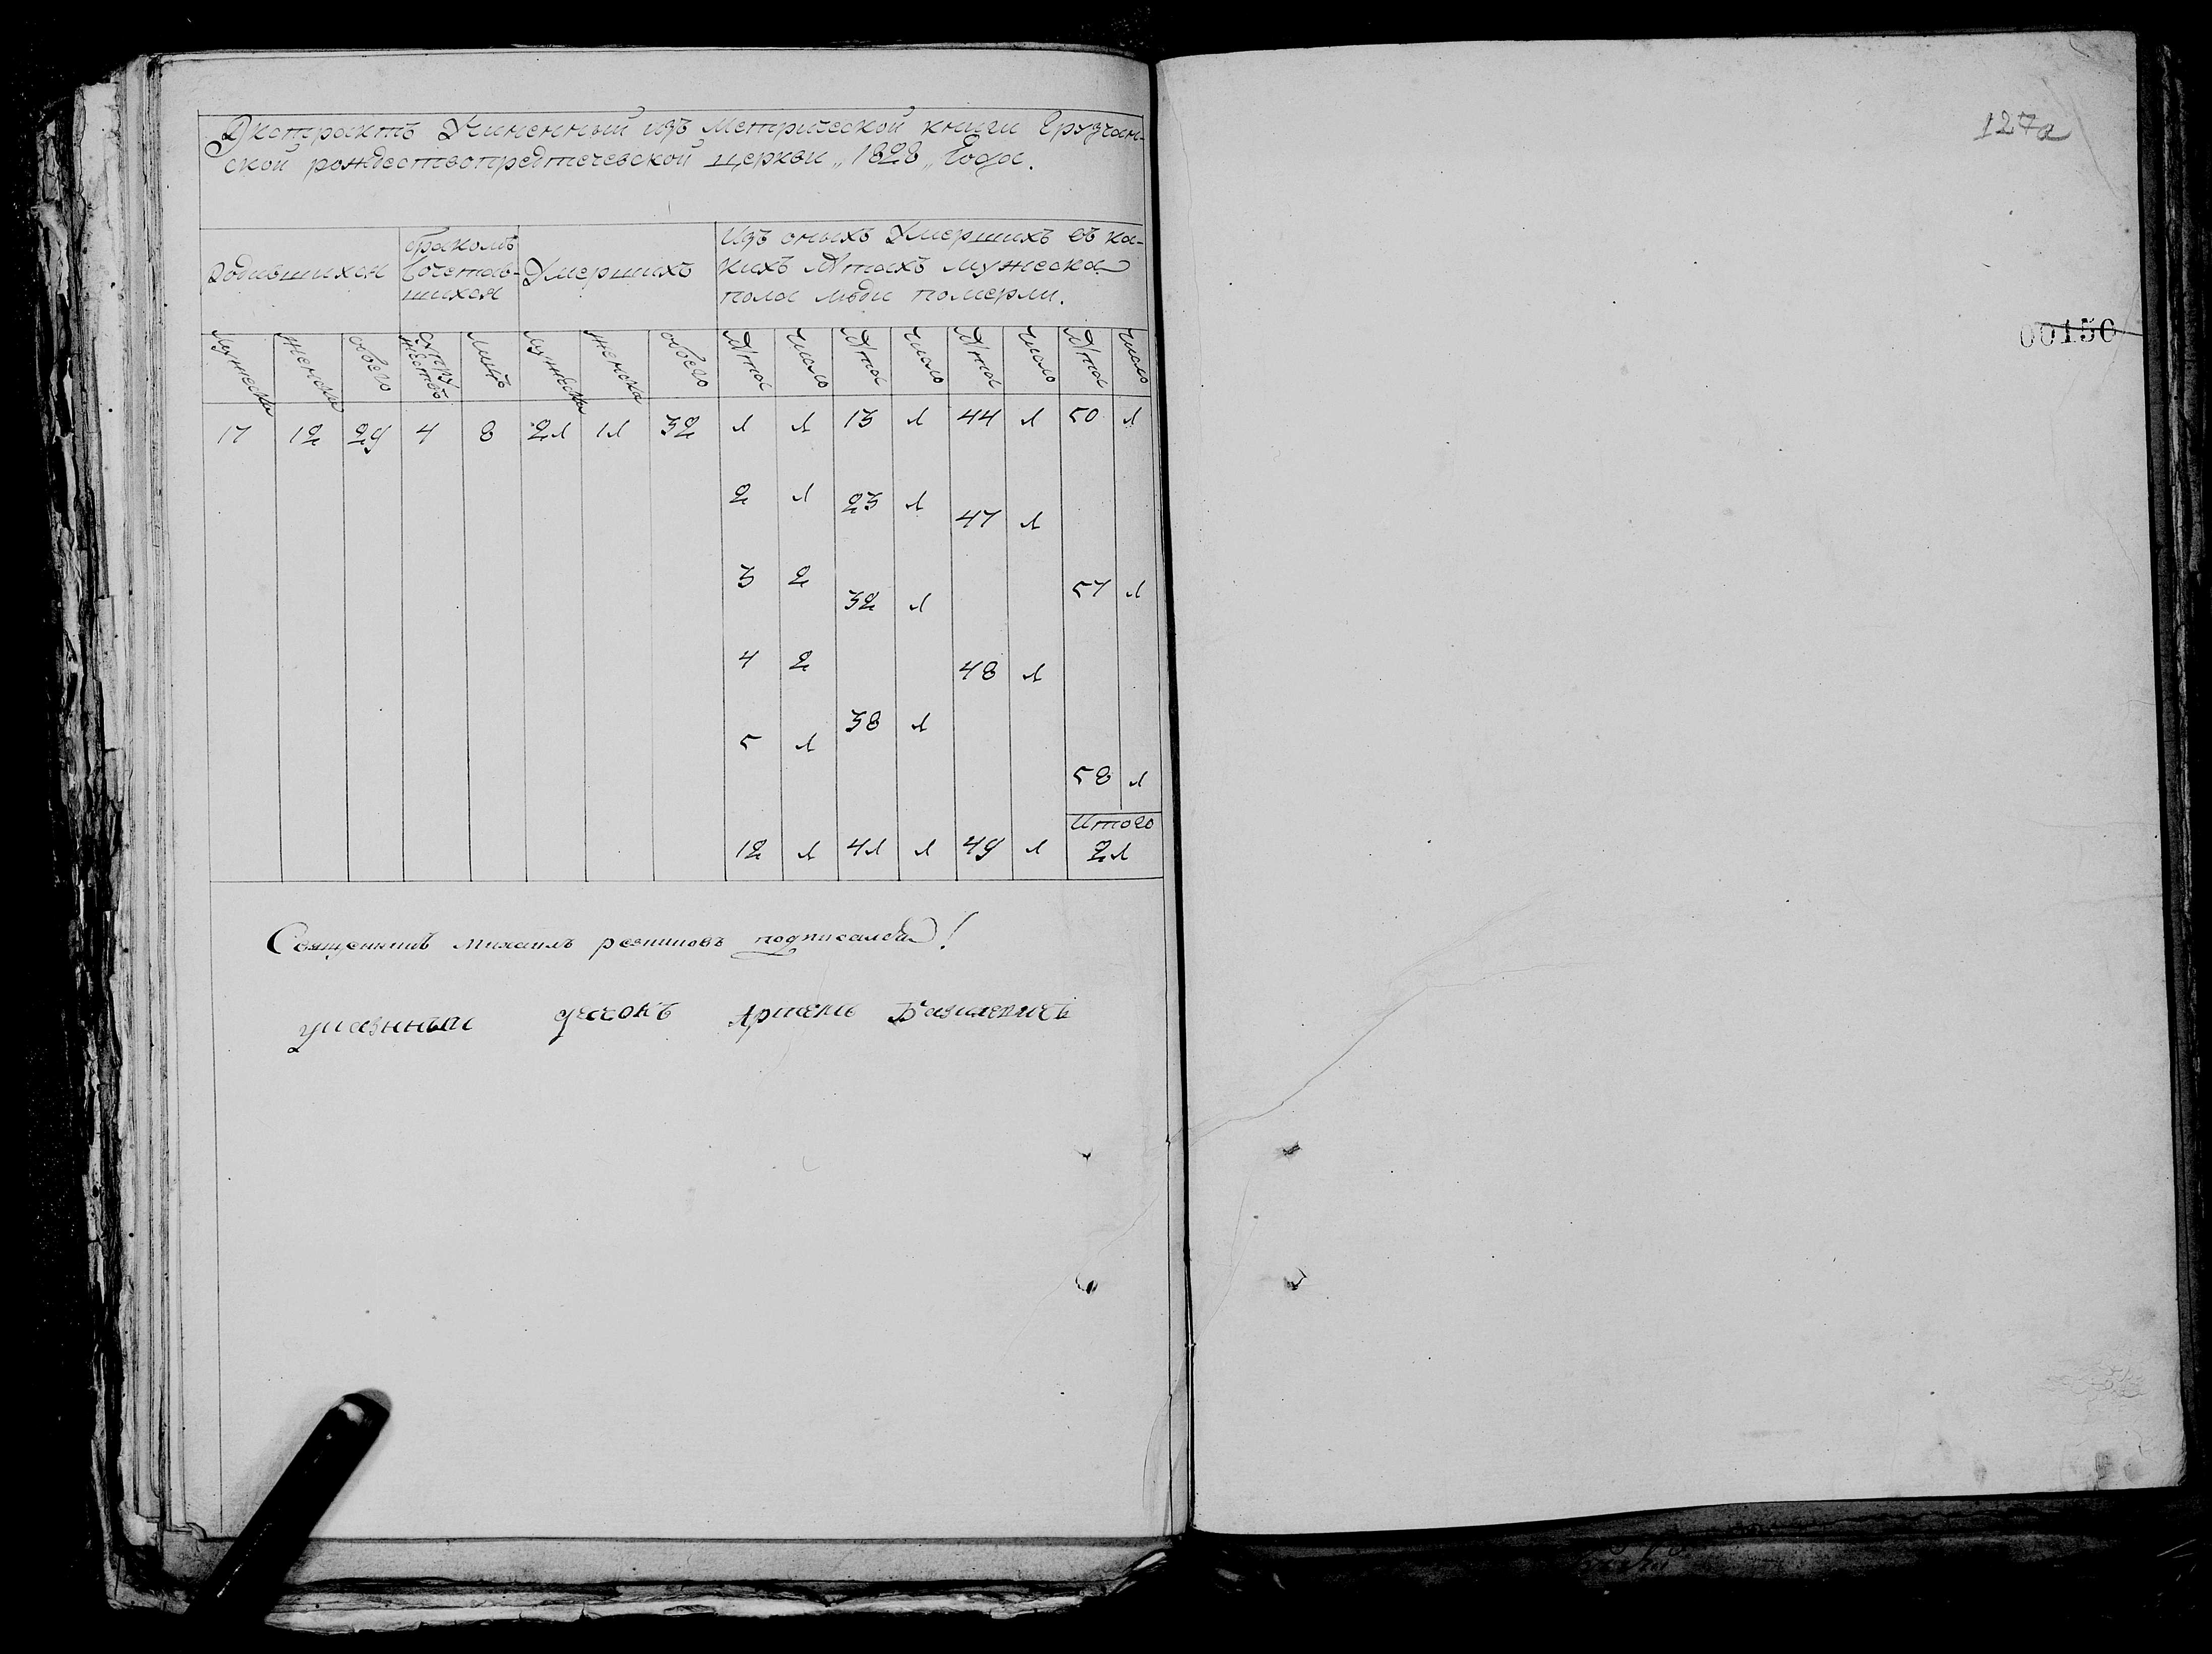 Экстрактъ Учиненный изъ Метрической книги Грузчан-
ской рождествопредтечевской церкви „1828„ Года.
Родившихся
браком Сочетав-
шихся
Умершихъ
Изъ оныхъ Умершихъ въ ка-
кихъ лѣтахъ мужеска
пола люди померли.
Мужеска женска обоего супружествъ лицъ Мужеска женска обоего Лѣта Число Лѣта Число Лѣта Число Лѣта Число
17 12 29 4 8 21 11 32 1 1 13 1 44 1 50 1
2 1 23 1 47 1
3 2 32 1 57 1
4 2 48 1
5 1 38 1
58 1
Итого
12 1 41 1 49 1 21
Священникъ Михаилъ подписался!
указнный дьячокъ Артемъ Базилевичъ
127а
00150